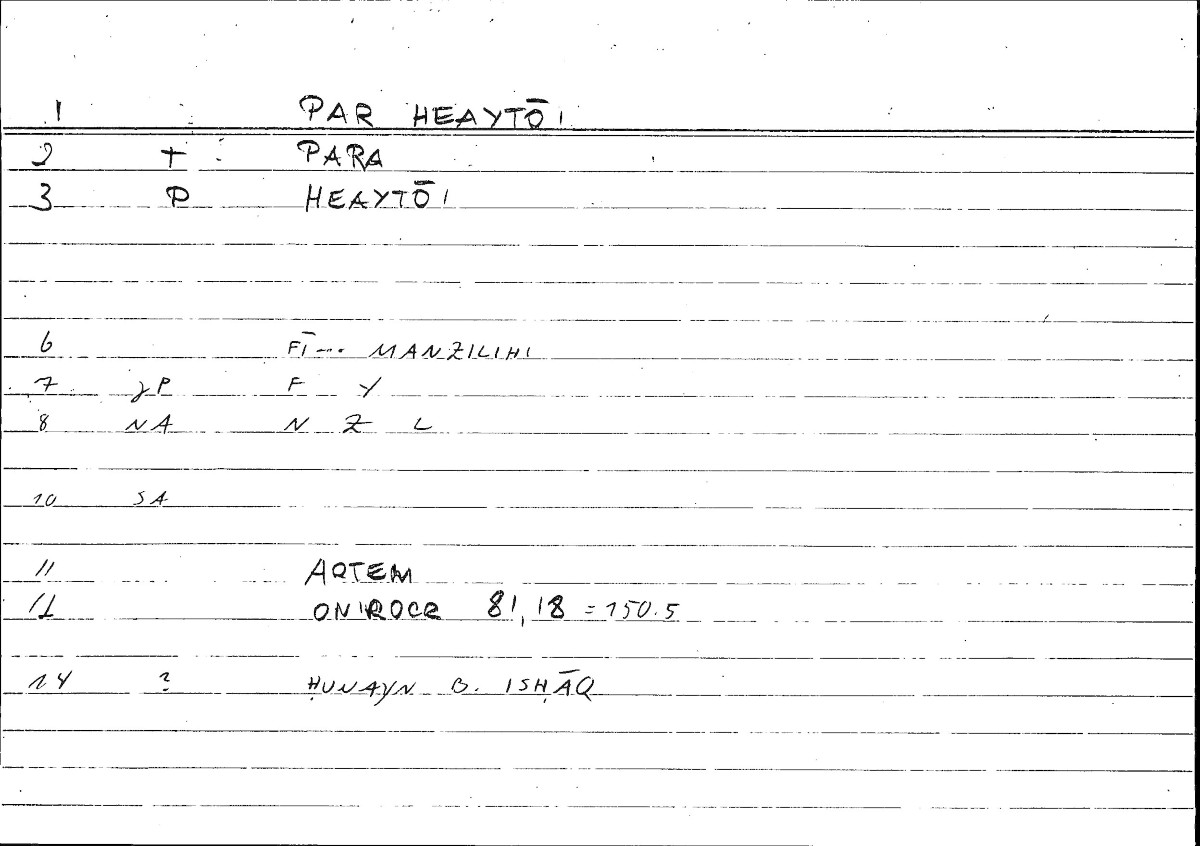 1 PAR HEAYTŌI
2 + PARA
3 P HEAYTŌI
6 FĪ --- MANZILIHI
7 γP F Y
8 NA N Z L
10 SA
11 ARTEM
12 ONIROCR 81,18 = 150.5
14 ? ḤUNAYN B. ISḤĀQ